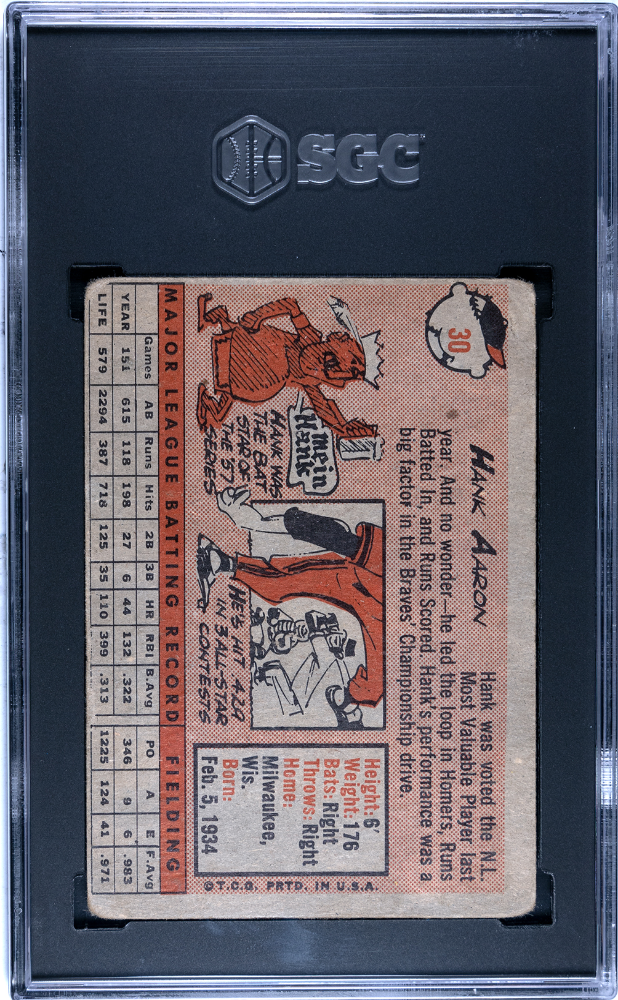 SGC
30
HANK AARON
Hank was voted the N.L.
Most Valuable Player last
year. And no wonder—he led the loop in Homers, Runs
Batted In, and Runs Scored. Hank's performance was a
big factor in the Braves' Championship drive.
mein
Hank
HANK WAS
THE BAT
STAR OF
THE '57
SERIES
HE'S HIT .429
IN 3 ALL-STAR
CONTESTS
Height: 6'
Weight: 176
Bats: Right
Throws: Right
Home:
Milwaukee,
Wis.
Born:
Feb. 5, 1934
©T.C.G. PRTD. IN U.S.A.
MAJOR LEAGUE BATTING RECORD FIELDING
Games AB Runs Hits 2B 3B HR RBI B.Avg PO A E F.Avg
YEAR 151 615 118 198 27 6 44 132 .322 346 9 6 .983
LIFE 579 2294 387 718 125 35 110 399 .313 1225 124 41 .971